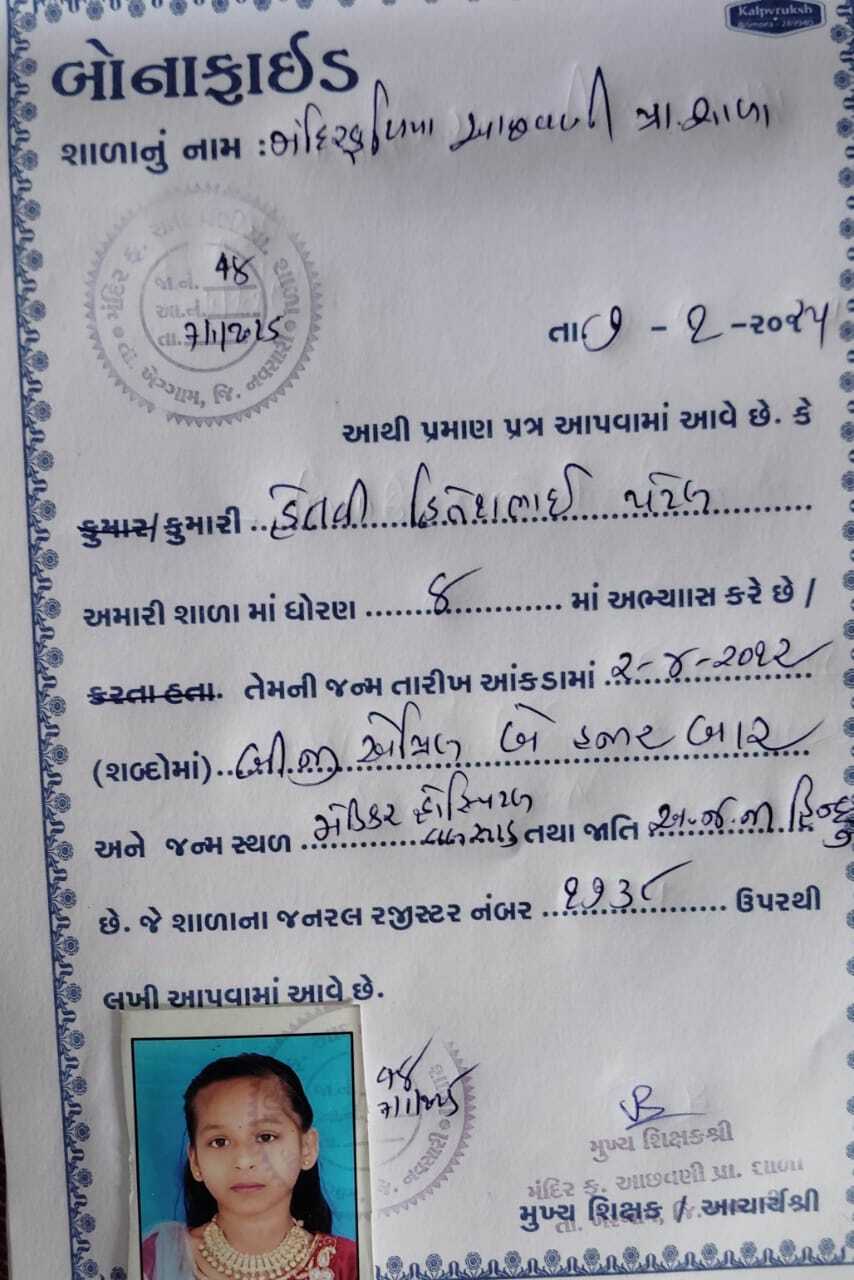 Kalpvruksh
બોનાફાઈડ
શાળાનું નામ : મંદિરફળિયા આછવણી પ્રા. શાળા
જા.નં. ૧૪
આ.નં.
તા. 7/1/2025
તા. ખેરગામ, જિ. નવસારી
તા ૭ - ૧ - ૨૦૨૫
આથી પ્રમાણ પત્ર આપવામાં આવે છે. કે
કુમાર/કુમારી હેતવી હિતેશભાઈ પટેલ
અમારી શાળા માં ધોરણ ૪ માં અભ્યાસ કરે છે /
કરતા હતા. તેમની જન્મ તારીખ આંકડામાં ૨-૪-૨૦૧૨
(શબ્દોમાં) બીજી એપ્રિલ બે હજાર બાર
અને જન્મ સ્થળ હોસ્પિટલ વલસાડ તથા જાતિ અ.જ.જા હિન્દુ
છે. જે શાળાના જનરલ રજીસ્ટર નંબર ૧૧૩૮ ઉપરથી
લખી આપવામાં આવે છે.
૧૪
7/1/2025
મુખ્ય શિક્ષકશ્રી
મંદિર ફ. આછવણી પ્રા. શાળા
મુખ્ય શિક્ષક / આચાર્યશ્રી